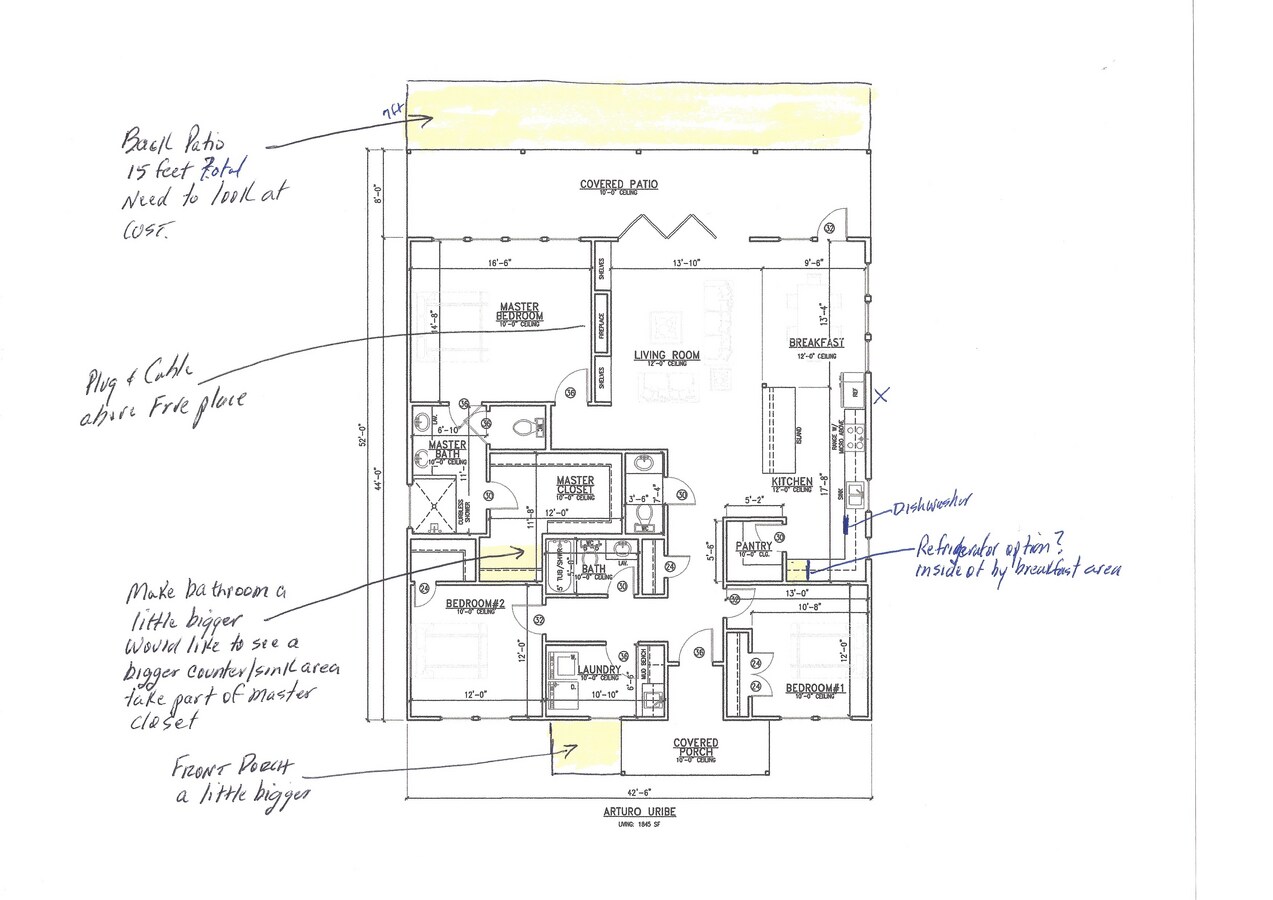 7ft
Back Patio
15 feet Total
Need to look at
COST.
COVERED PATIO
10'-0" CEILING
8'-0"
32
16'-6"
SHELVES
13'-10"
9'-6"
MASTER
BEDROOM
10'-0" CEILING
14'-8"
FIREPLACE
13'-4"
BREAKFAST
12'-0" CEILING
LIVING ROOM
12'-0" CEILING
Plug & Cable
above Fire place
SHELVES
36
REF
X
36
LAV.
36
6'-10"
MASTER
BATH
10'-0" CEILING
11'-
52'-0"
44'-0"
ISLAND
RANGE W/
MICRO ABOVE
KITCHEN
12'-0" CEILING
17'-8"
SINK
MASTER
CLOSET
10'-0" CEILING
30
12'-0"
11'-8"
CURBLESS
SHOWER
3'-6"
7'-4"
WC
30
5'-2"
Dishwasher
PANTRY
10'-0" CLG.
30
5'-6"
Refrigerator option?
inside of by breakfast area
5' TUB/SHWR
WC
5'-0"
BATH
10'-0" CEILING
LAV.
30
24
24
Make bathroom a
little bigger
Would like to see a
bigger counter/sink area
take part of master
closet
BEDROOM#2
10'-0" CEILING
32
12'-0"
12'-0"
32
13'-0"
10'-8"
36
LAUNDRY
10'-0" CEILING
MUD BENCH
6'-6"
10'-10"
36
24
24
12'-0"
BEDROOM#1
10'-0" CEILING
FRONT PORCH
a little bigger
COVERED
PORCH
10'-0" CEILING
42'-6"
ARTURO URIBE
LIVING: 1845 SF